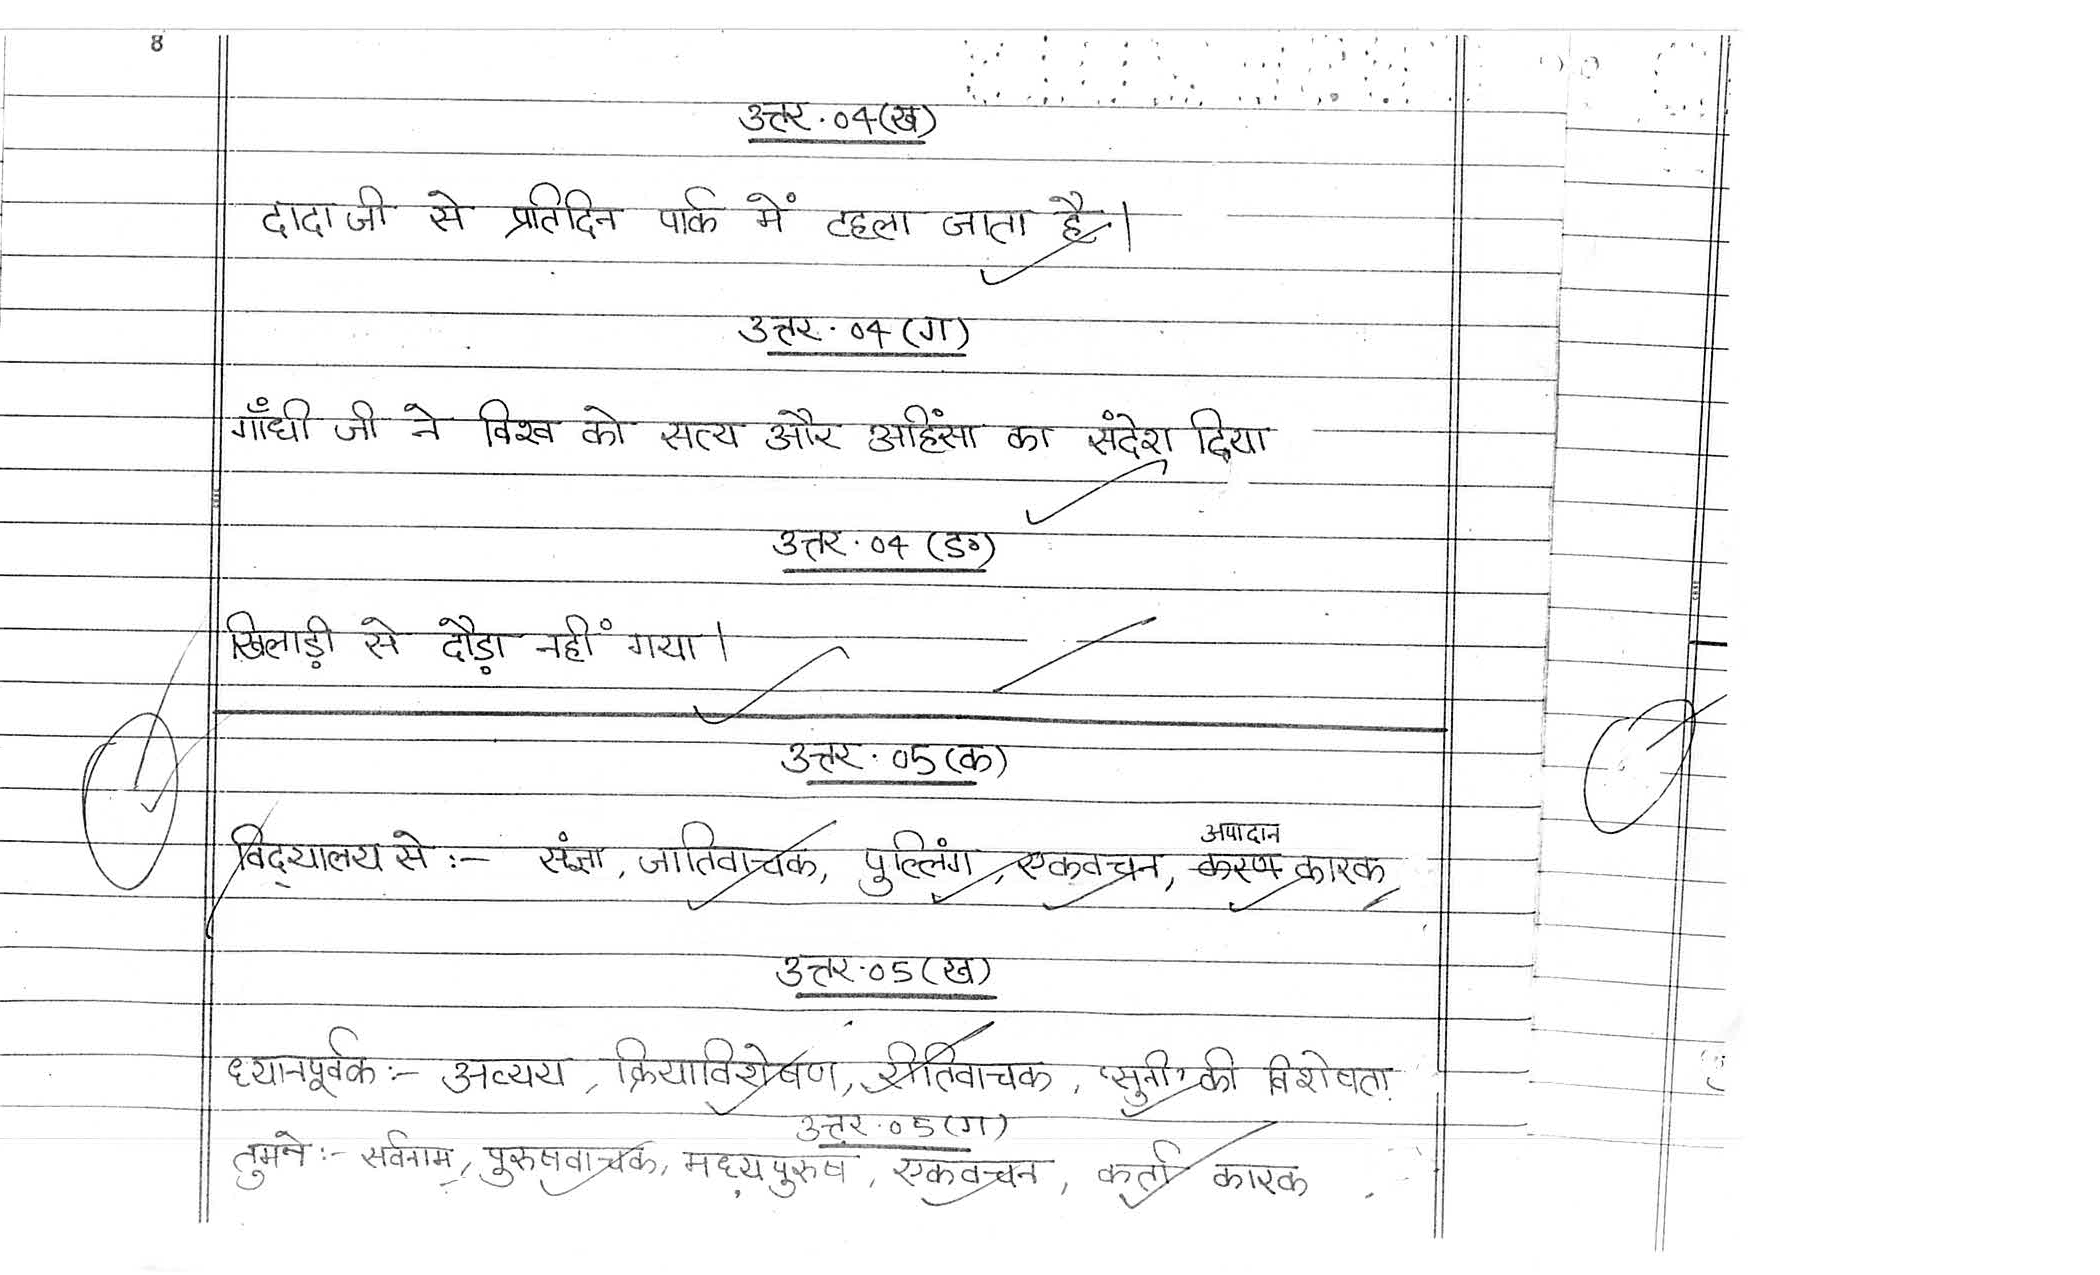 8
उत्तर. 04(ख)
दादा जी से प्रतिदिन पार्क में टहला जाता है।
उत्तर. 04 (ग)
गाँधी जी ने विश्व को सत्य और अहिंसा का संदेश दिया
उत्तर. 04 (ड॰)
खिलाड़ी से दौड़ा नहीं गया।
उत्तर. 05(क)
अपादान
विद्यालय से :- संज्ञा, जातिवाचक, पुल्लिंग, एकवचन, करण कारक
उत्तर. 05(ख)
ध्यानपूर्वक :- अव्यय, क्रियाविशेषण, रीतिवाचक, 'सुनी' की विशेषता
उत्तर. 05(ग)
तुमने :- सर्वनाम, पुरुषवाचक, मध्यपुरुष, एकवचन, कर्ता कारक